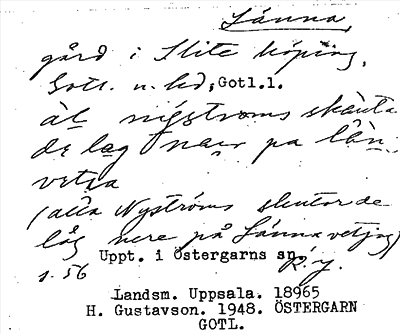 Sánna
gård i Slite köping,
Gotl. n. hd, Gotl.l.
al nystroms skuta
de lag nær pa lån-
vetja
(alla Nyströms skutor de
låg nere på Sánna vetja)
Uppt. i Östergarns sn
s. 56
Landsm. Uppsala. 18965
H. Gustavson. 1948. ÖSTERGARN
GOTL.